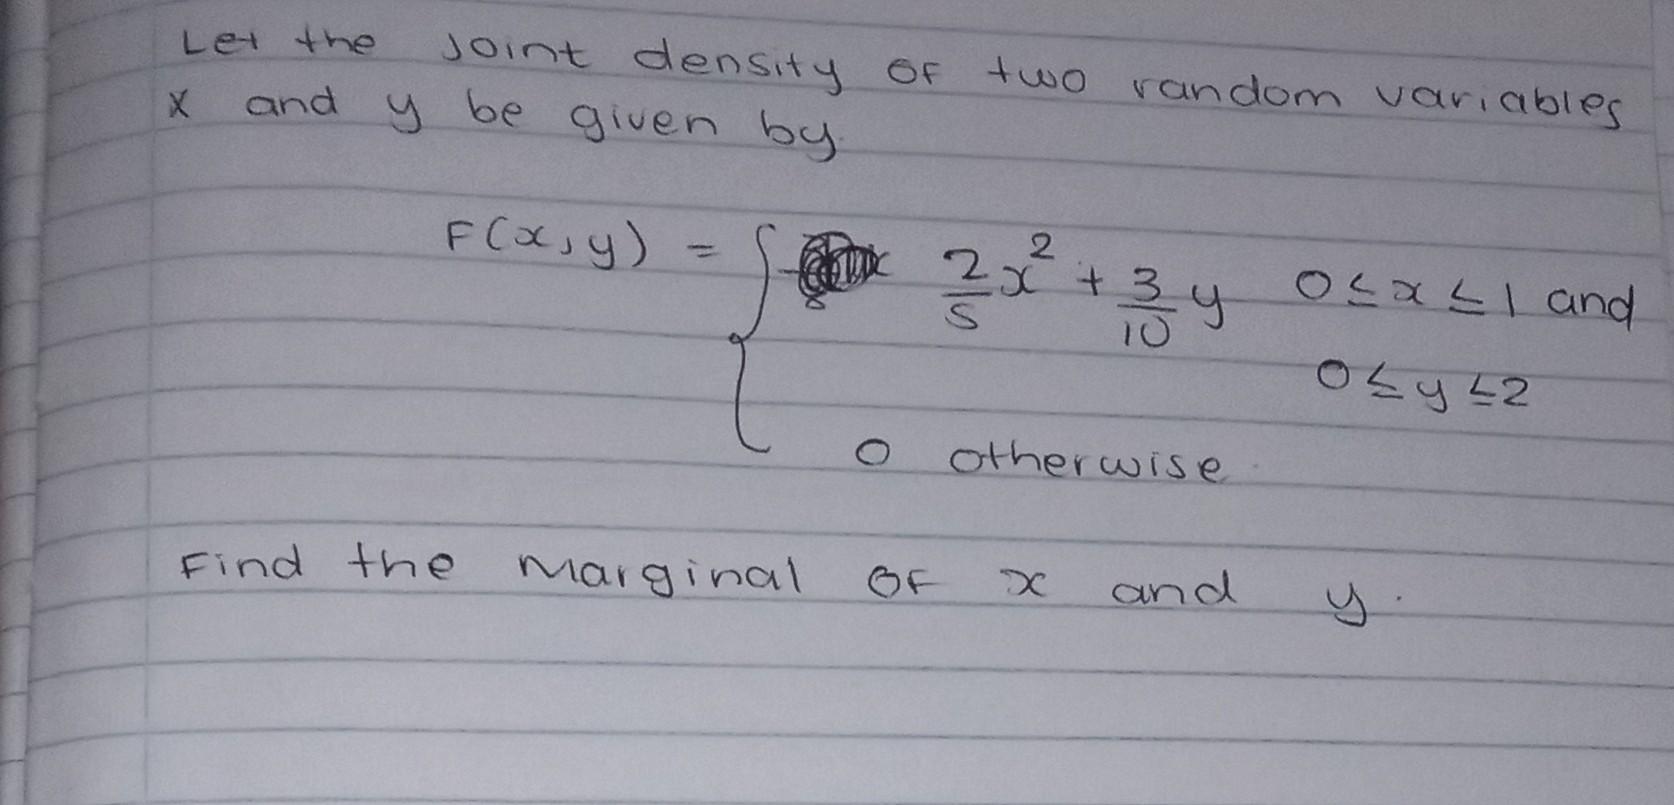 Let the joint density of two random variables
x and y be given by.
F(x,y) = { 2/5 x² + 3/10 y 0 ≤ x ≤ 1 and
0 ≤ y ≤ 2
0 otherwise.
Find the marginal of x and y.